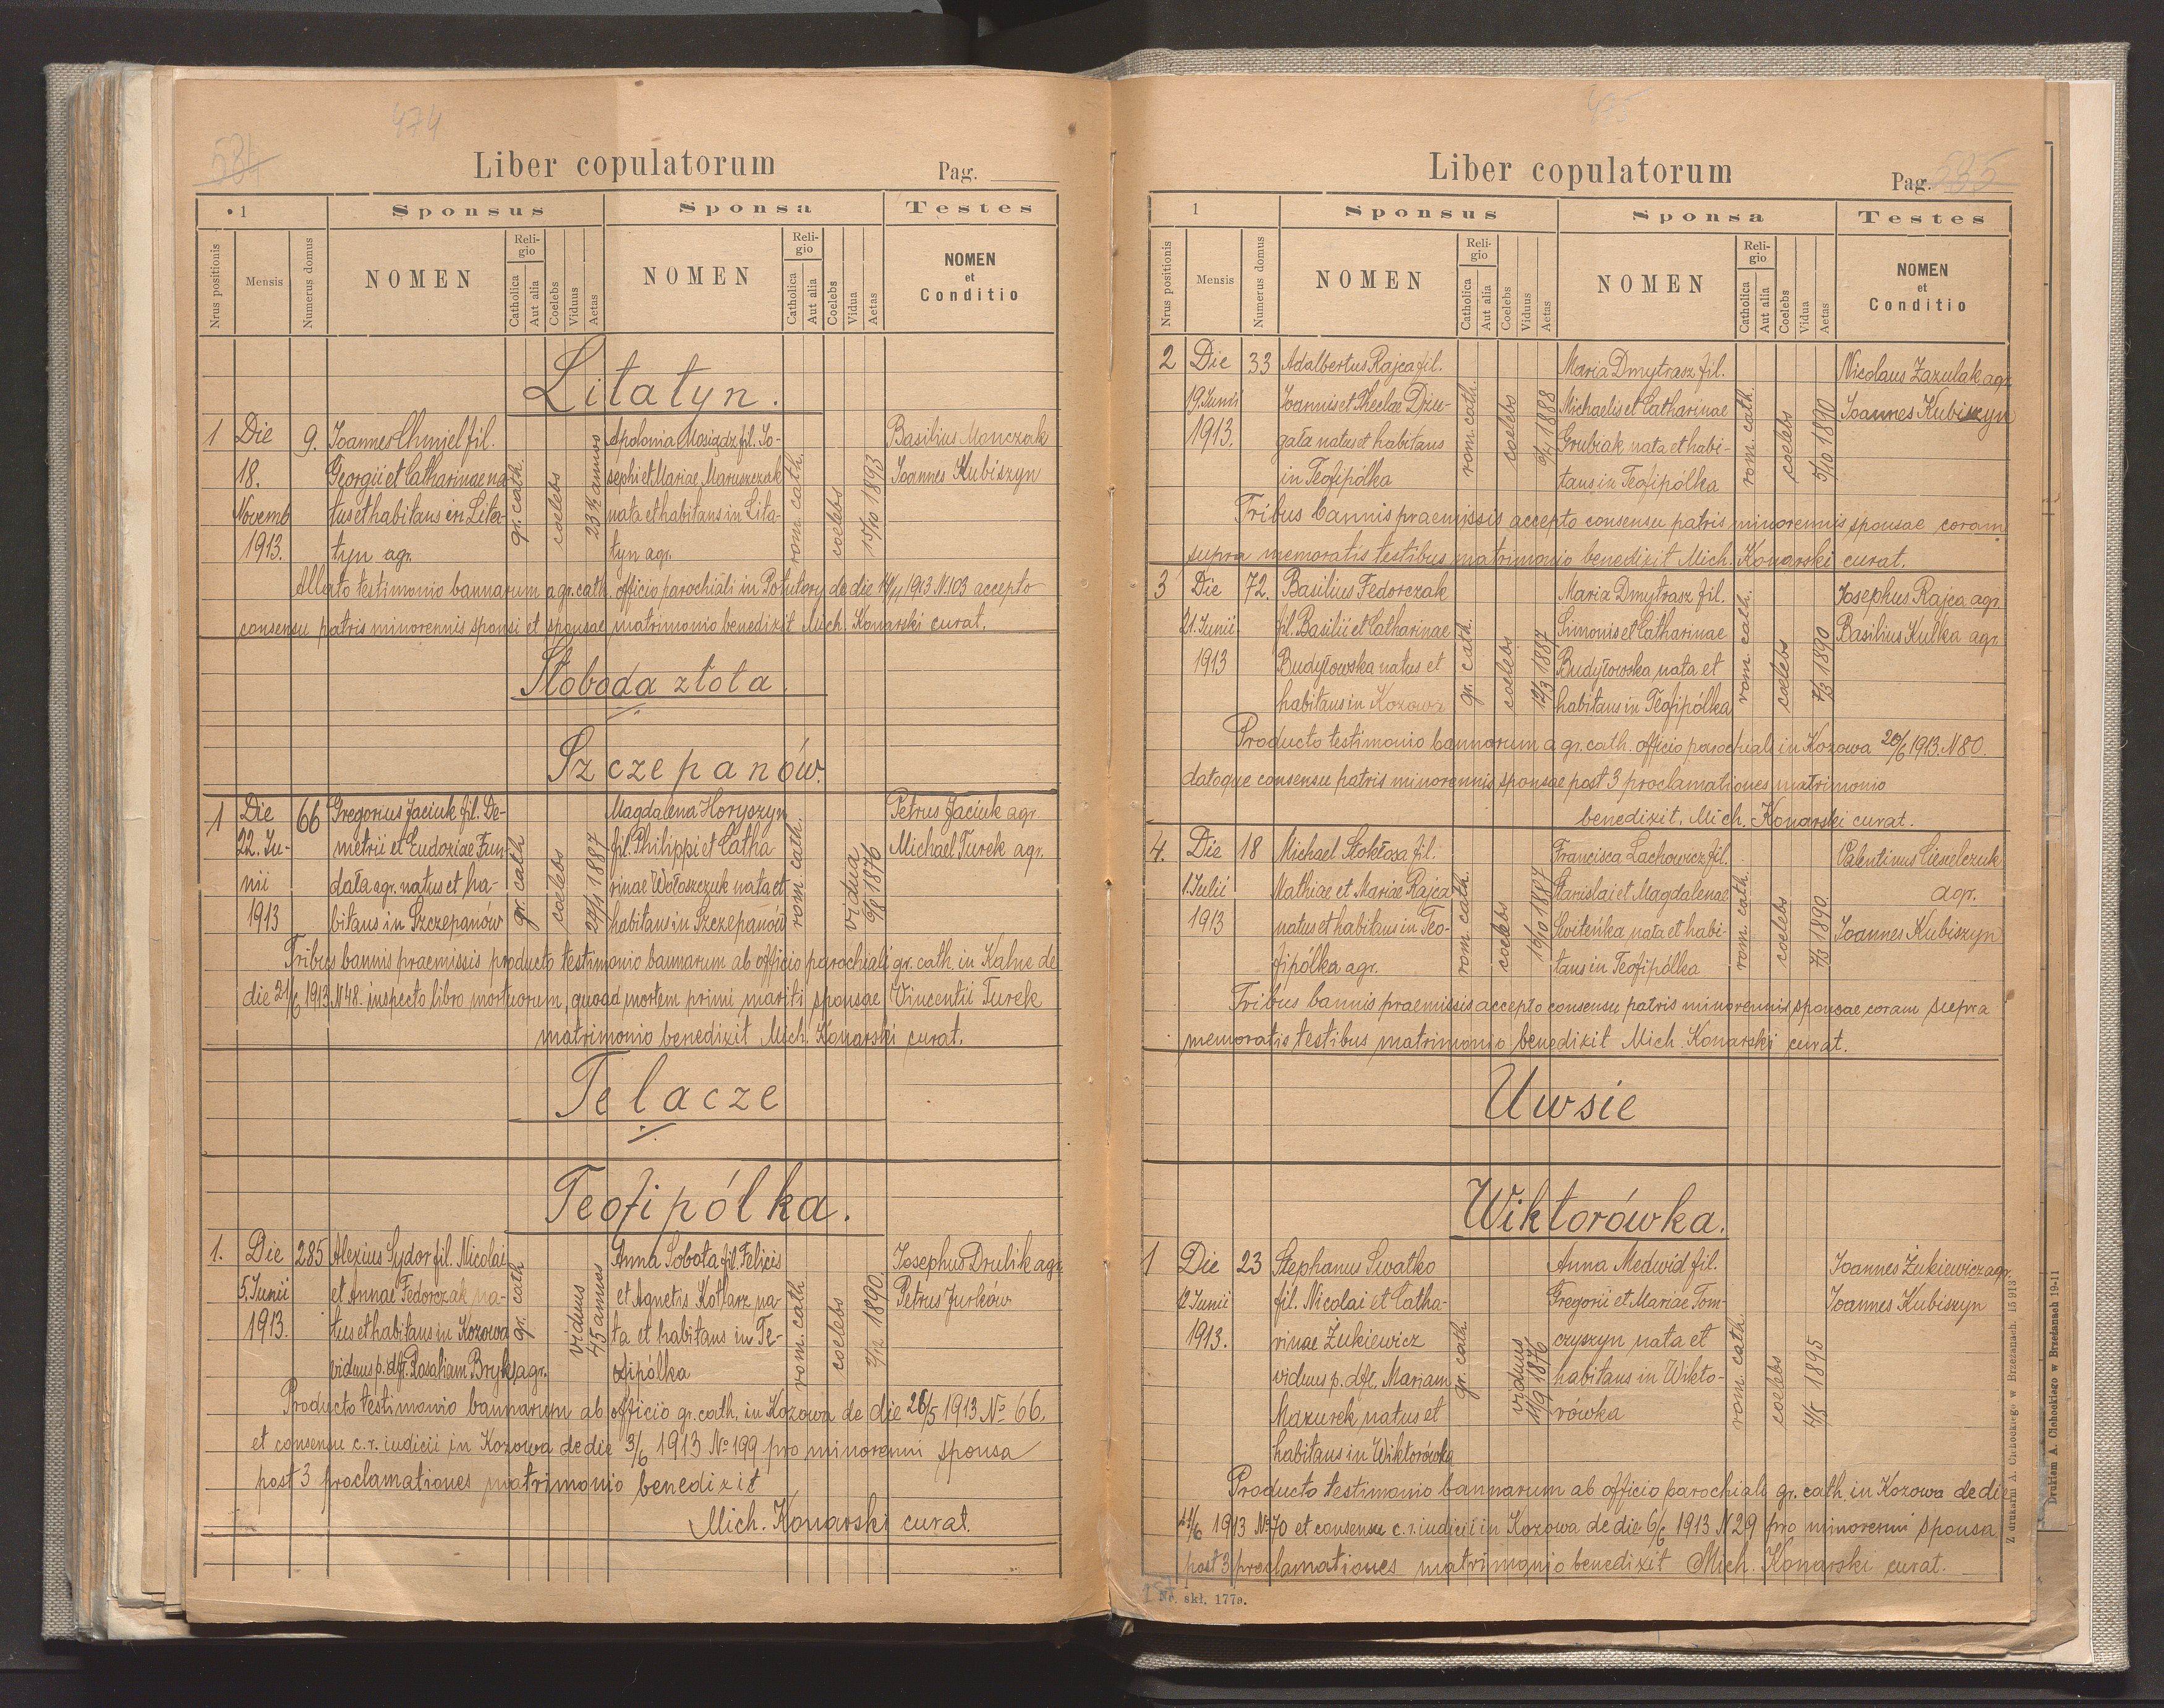 474
534
Liber copulatorum
Pag.
1
Sponsus
Sponsa
Testes
Nrus positionis
Mensis
Numerus domus
NOMEN
Religio
Catholica
Aut alia
Coelebs
Viduus
Aetas
NOMEN
Religio
Catholica
Aut alia
Coelebs
Vidua
Aetas
NOMEN
et
Conditio
Litatyn.
1 Die 9. Joannes Chmjel fil. Apolonia Mosiądz fil. Jo- Basilius Monczak
18. Georgii et Catharinae na sephi et Mariae Maruszczak Joannes Kubiszyn
Novemb tus et habitans in Lita- nata et habitans in Lita-
1913. tyn agr. tyn agr.
gr. cath. coelebs 23 ½ annos rom. cath. coelebs 15/10 1893
Allato testimonio bannarum a gr. cath. officio parochiali in Potutory de die 14/11 1913 N. 103 accepto
consensu patris minorennis sponsi et sponsae matrimonio benedixit Mich. Konarski curat.
Słoboda złota.
Szczepanów.
1 Die 66 Gregorius Jaciuk fil. De- Magdalena Horyszyn Petrus Jaciuk agr.
22. Ju- metrii et Eudoxiae Fun- fil. Philippi et Catha Michael Turek agr.
nii data agr. natus et ha- rinae Wołoszczuk nata et
1913 bitans in Szczepanów habitans in Szczepanów
gr. cath coelebs 24/1 1887 rom. cath. vidua 6/8 1876
Tribus bannis praemissis producto testimonio bannarum ab officio parochiali gr. cath. in Kalne de
die 21/6 1913 N 48. inspecto libro mortuorum, quoad mortem primi mariti sponsae Vincentii Turek
matrimonio benedixit Mich. Konarski curat.
Telacze
Teofipólka.
1. Die 285 Alexius Sydor fil. Nicolai Anna Sobota fil. Felicis Josephus Drulik agr.
5. Junii et Annae Fedorczak na- et Agnetis Kotlarz na- Petrus Jurków
1913. tus et habitans in Kozowa ta et habitans in Te-
viduus p. dft. Rosaliam Bryk, agr. ofipólka
gr. cath viduus 45 annos rom. cath coelebs 2/12 1890.
Producto testimonio bannarum ab officio gr. cath. in Kozowa de die 26/5 1913 No 66.
et consensu c. r. iudicii in Kozowa de die 3/6 1913 No 199 pro minorenni sponsa
post 3 proclamationes matrimonio benedixit
Mich. Konarski curat.
475
Liber copulatorum
Pag. 535
1
Sponsus
Sponsa
Testes
Nrus positionis
Mensis
Numerus domus
NOMEN
Religio
Catholica
Aut alia
Coelebs
Viduus
Aetas
NOMEN
Religio
Catholica
Aut alia
Coelebs
Vidua
Aetas
NOMEN
et
Conditio
2 Die 33 Adalbertus Rajca fil. Maria Dmytrasz fil. Nicolaus Zazulak agr
19. Junii Joannis et Theclae Dziu- Michaelis et Catharinae Joannes Kubiszyn
1913. gała natus et habitans Grubiak nata et habi-
in Teofipólka tans in Teofipólka
rom. cath. coelebs 9/4 1888 rom. cath. coelebs 5/10 1890
Tribus bannis praemissis accepto consensu patris minorennis sponsae coram
supra memoratis testibus matrimonio benedixit Mich. Konarski curat.
3 Die 72. Basilius Fedorczak Maria Dmytrasz fil. Josephus Rajca agr.
21. Junii fil. Basilii et Catharinae Simonis et Catharinae Basilius Kulka agr.
1913 Budyłowska natus et Budyłowska nata et
habitans in Kozowa habitans in Teofipólka
gr. cath. coelebs 12/3 1887 rom. cath. coelebs 7/3 1890
Producto testimonio bannorum a gr. cath. officio parochiali in Kozowa 20/6 1913. N 80.
datoque consensu patris minorennis sponsae post 3 proclamationes matrimonio
benedixit. Mich. Konarski curat.
4. Die 18 Michael Stokłosa fil. Francisca Lachowicz fil. Valentinus Ciesielczuk
1. Julii Mathiae et Mariae Rajca Stanislai et Magdalenae agr.
1913 natus et habitans in Teo- Switeńka nata et habi- Joannes Kubiszyn
fipólka agr. tans in Teofipólka
rom cath. coelebs 10/10 1887 rom. cath. coelebs 7/3 1890
Tribus bannis praemissis accepto consensu patris minorennis sponsae coram supra
memoratis testibus matrimonio benedixit Mich. Konarski curat.
Uwsie
Wiktorówka.
1 Die 23 Stephanus Swatko Anna Medwid fil. Joannes Żukiewicz agr.
12 Junii fil. Nicolai et Catha- Gregorii et Mariae Tom- Joannes Kubiszyn
1913. rinae Żukiewicz czyszyn nata et
viduus p. dft. Mariam habitans in Wikto-
Mazurek natus et rówka
habitans in Wiktorówka
gr. cath. viduus 11/9 1876 rom. cath. coelebs 4/5 1895
Producto testimonio bannarum ab officio parochiali gr. cath. in Kozowa de die
1913 No 70 et consensu c. r. iudicii in Kozowa de die 6/6 1913 N 29 pro minorenni sponsa
post 3 proclamationes matrimonio benedixit Mich. Konarski curat.
Nr. skł. 177a.
Z drukarni A. Cichockiego w Brzeżanach. 15 913
Drukiem A. Cichockiego w Brzeżanach 19-11